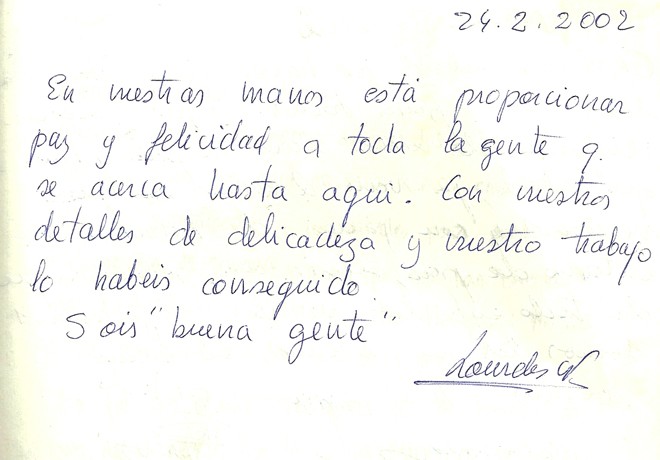 24.2.2002
En vuestras manos está proporcionar
paz y felicidad a toda la gente q.
se acerca hasta aqui. Con vuestros
detalles de delicadeza y vuestro trabajo
lo habeis conseguido.
Sois "buena gente"
Lourdes